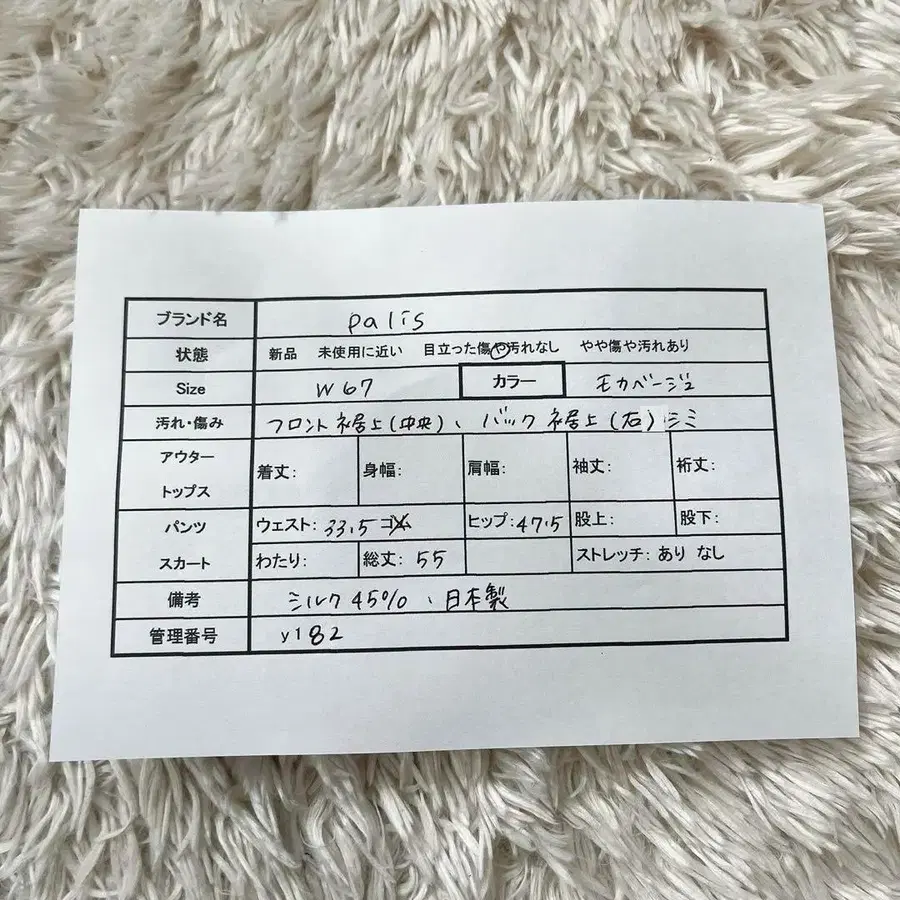 ブランド名 palis
状態 新品 未使用に近い 目立った傷や汚れなし やや傷や汚れあり
Size W67 カラー モカベージュ
汚れ・傷み フロント裾上(中央)、バック裾上(右)シミ
アウター
トップス
着丈: 身幅: 肩幅: 袖丈: 裄丈:
パンツ ウェスト: 33.5 ゴム ヒップ: 47.5 股上: 股下:
スカート わたり: 総丈: 55 ストレッチ: あり なし
備考 シルク45%、日本製
管理番号 y182